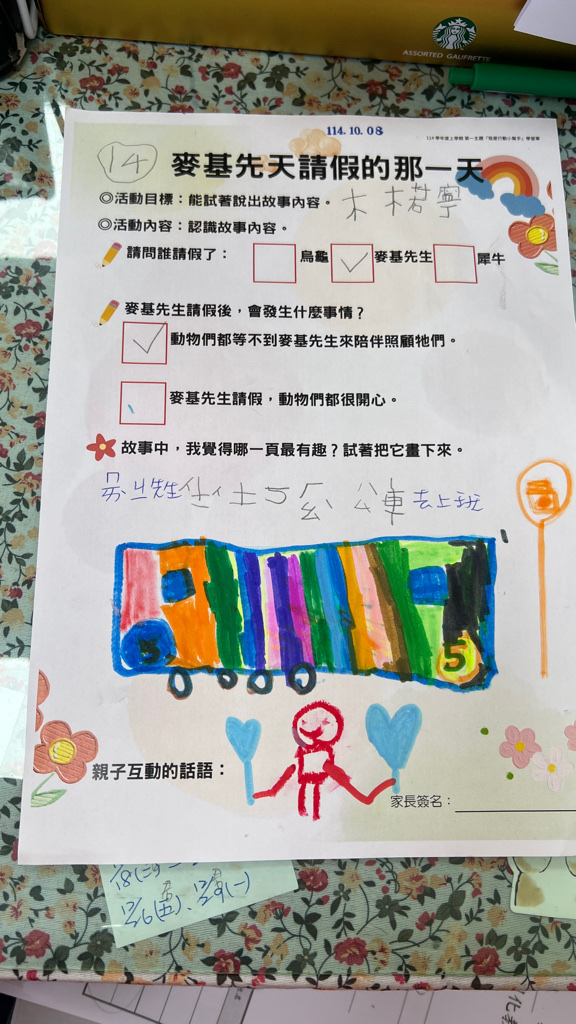 ASSORTED GAUFRETTE
114.10.08
114 學年度上學期 第一主題「我是行動小幫手」學習單
14 麥基先天請假的那一天
◎活動目標：能試著說出故事內容。
◎活動內容：認識故事內容。
請問誰請假了： 烏龜 麥基先生 犀牛
麥基先生請假後，會發生什麼事情？
動物們都等不到麥基先生來陪伴照顧牠們。
麥基先生請假，動物們都很開心。
故事中，我覺得哪一頁最有趣？試著把它畫下來。
公車去上班
5 5
親子互動的話語：
家長簽名：
12/6(五)、12/9(一)